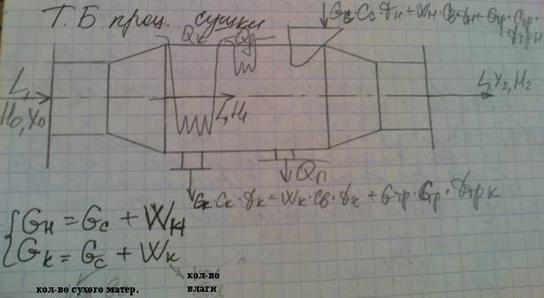 Т.Б проц. сушки
Qк Qд
Gc·Cc·ϑн + Wн·Cв·ϑн + Gтр·Cтр·ϑтрн
L,
H₀, X₀
L, H₁
L, X₂, H₂
Qп
Gк·Cк·ϑк = Wк·Cв·ϑк + Gтр·Cтр·ϑтр к
Gн = Gc + Wн
Gк = Gc + Wк
кол-во сухого матер.
кол-во
влаги